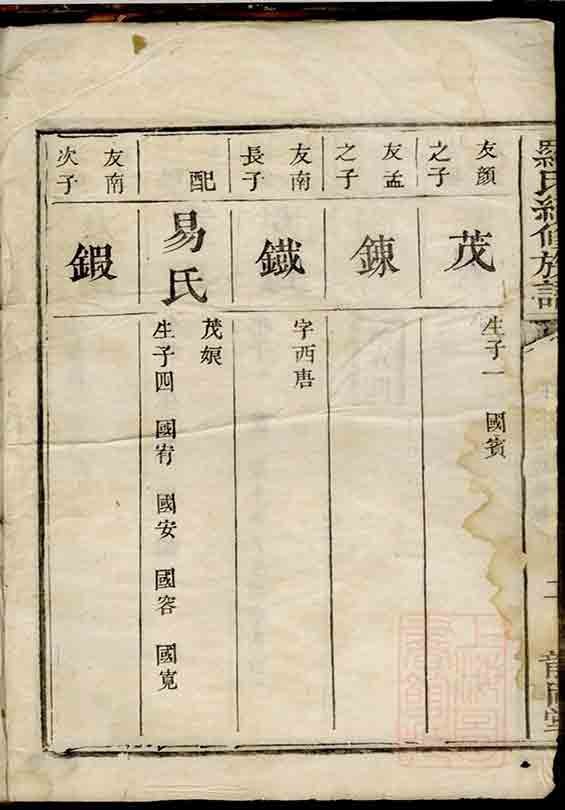 羅氏續修族譜
二
友顏
之子
茂
生子一 國賓
友孟
之子
鍊
友南
長子
鐵
字西唐
配
易氏
茂娘
生子四 國宥 國安 國容 國寬
友南
次子
鍜